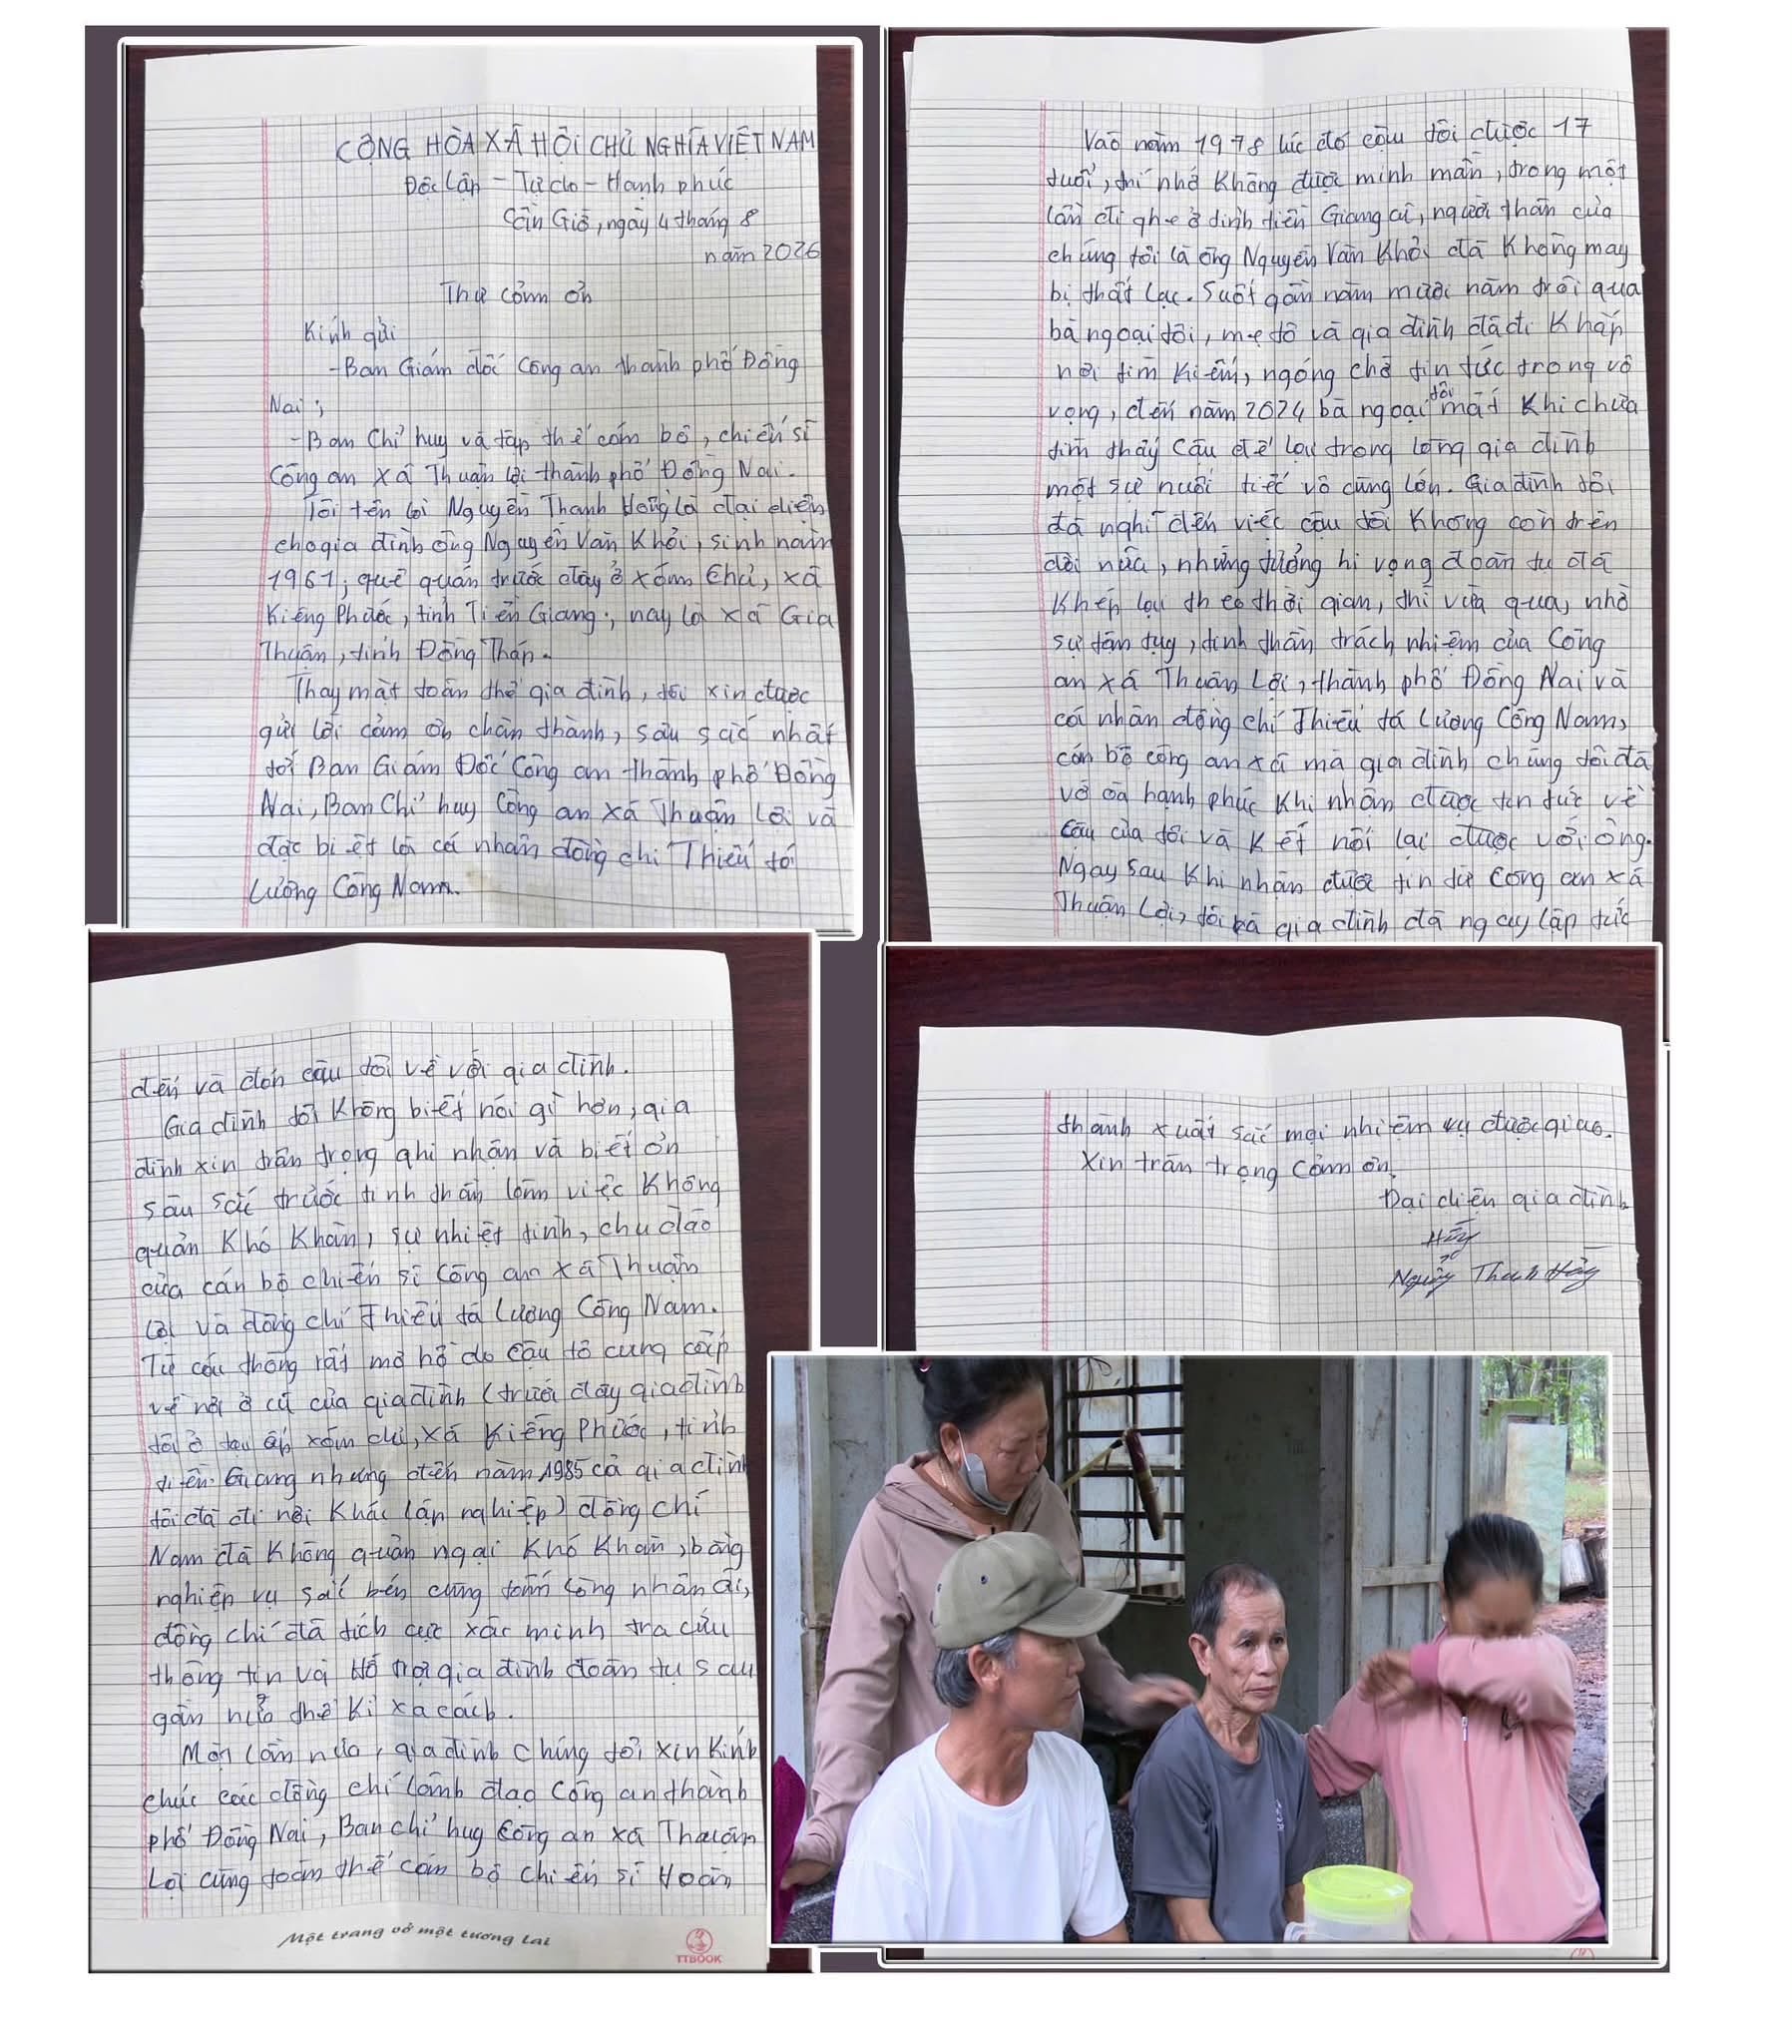 CỘNG HÒA XÃ HỘI CHỦ NGHĨA VIỆT NAM
Độc lập - Tự do - Hạnh phúc
Cần Giờ, ngày 4 tháng 8
năm 2026
Thư cảm ơn
Kính gửi
- Ban Giám đốc Công an thành phố Đồng
Nai;
- Ban Chỉ huy và tập thể cán bộ, chiến sĩ
Công an xã Thuận Lợi thành phố Đồng Nai.
Tôi tên là Nguyễn Thanh Hồng là đại diện
cho gia đình ông Nguyễn Văn Khởi, sinh năm
1961, quê quán trước đây ở xóm Chủ, xã
Kiểng Phước, tỉnh Tiền Giang, nay là xã Gia
Thuận, tỉnh Đồng Tháp.
Thay mặt toàn thể gia đình, tôi xin được
gửi lời cảm ơn chân thành, sâu sắc nhất
tới Ban Giám Đốc Công an thành phố Đồng
Nai, Ban Chỉ huy Công an xã Thuận Lợi và
đặc biệt là cá nhân đồng chí Thiếu tá
Lương Công Nam.
Vào năm 1978 lúc đó cậu tôi được 17
tuổi, trí nhớ không được minh mẫn, trong một
lần đi ghe ở tỉnh tiền Giang cũ, người thân của
chúng tôi là ông Nguyễn Văn Khởi đã không may
bị thất lạc. Suốt gần năm mươi năm trôi qua
bà ngoại tôi, mẹ tô và gia đình đã đi khắp
nơi tìm kiếm, ngóng chờ tin tức trong vô
vọng, đến năm 2024 bà ngoại tôi mất khi chưa
tìm thấy cậu để lại trong lòng gia đình
một sự nuối tiếc vô cùng lớn. Gia đình tôi
đã nghĩ đến việc cậu tôi không còn trên
đời nữa, nhưng tưởng hi vọng đoàn tụ đã
khép lại theo thời gian, thì vừa qua, nhờ
sự tận tụy, tinh thần trách nhiệm của Công
an xã Thuận Lợi, thành phố Đồng Nai và
cá nhân đồng chí Thiếu tá Lương Công Nam,
cán bộ công an xã mà gia đình chúng tôi đã
vỡ òa hạnh phúc khi nhận được tin tức về
cậu của tôi và kết nối lại được với ông.
Ngay sau khi nhận được tin từ Công an xã
Thuận Lợi, tôi và gia đình đã ngay lập tức
đến và đón cậu tôi về với gia đình.
Gia đình tôi không biết nói gì hơn, gia
đình xin trân trọng ghi nhận và biết ơn
sâu sắc trước tinh thần làm việc không
quản khó khăn, sự nhiệt tình, chu đáo
của cán bộ chiến sĩ Công an xã Thuận
Lợi và đồng chí Thiếu tá Lương Công Nam.
Từ câu thông rất mơ hồ do cậu tô cung cấp
về nơi ở cũ của gia đình (trước đây gia đình
tôi ở tại ấp xóm chủ, xã Kiểng Phước, tỉnh
tiền Giang nhưng đến năm 1985 cả gia đình
tôi đã đi nơi khác lập nghiệp) đồng chí
Nam đã không quản ngại khó khăn, bằng
nghiệp vụ sắc bén cùng tấm lòng nhân ái,
đồng chí đã tích cực xác minh tra cứu
thông tin và hỗ trợ gia đình đoàn tụ sau
gần nửa thế kỉ xa cách.
Một lần nữa, gia đình chúng tôi xin kính
chúc các đồng chí lãnh đạo Công an thành
phố Đồng Nai, Ban chỉ huy Công an xã Thuận
Lợi cùng toàn thể cán bộ chiến sĩ Hoàn
Một trang vở một tương lai
TTBOOK
thành xuất sắc mọi nhiệm vụ được giao.
Xin trân trọng cảm ơn.
Đại diện gia đình
Nguyễn Thanh Hồng